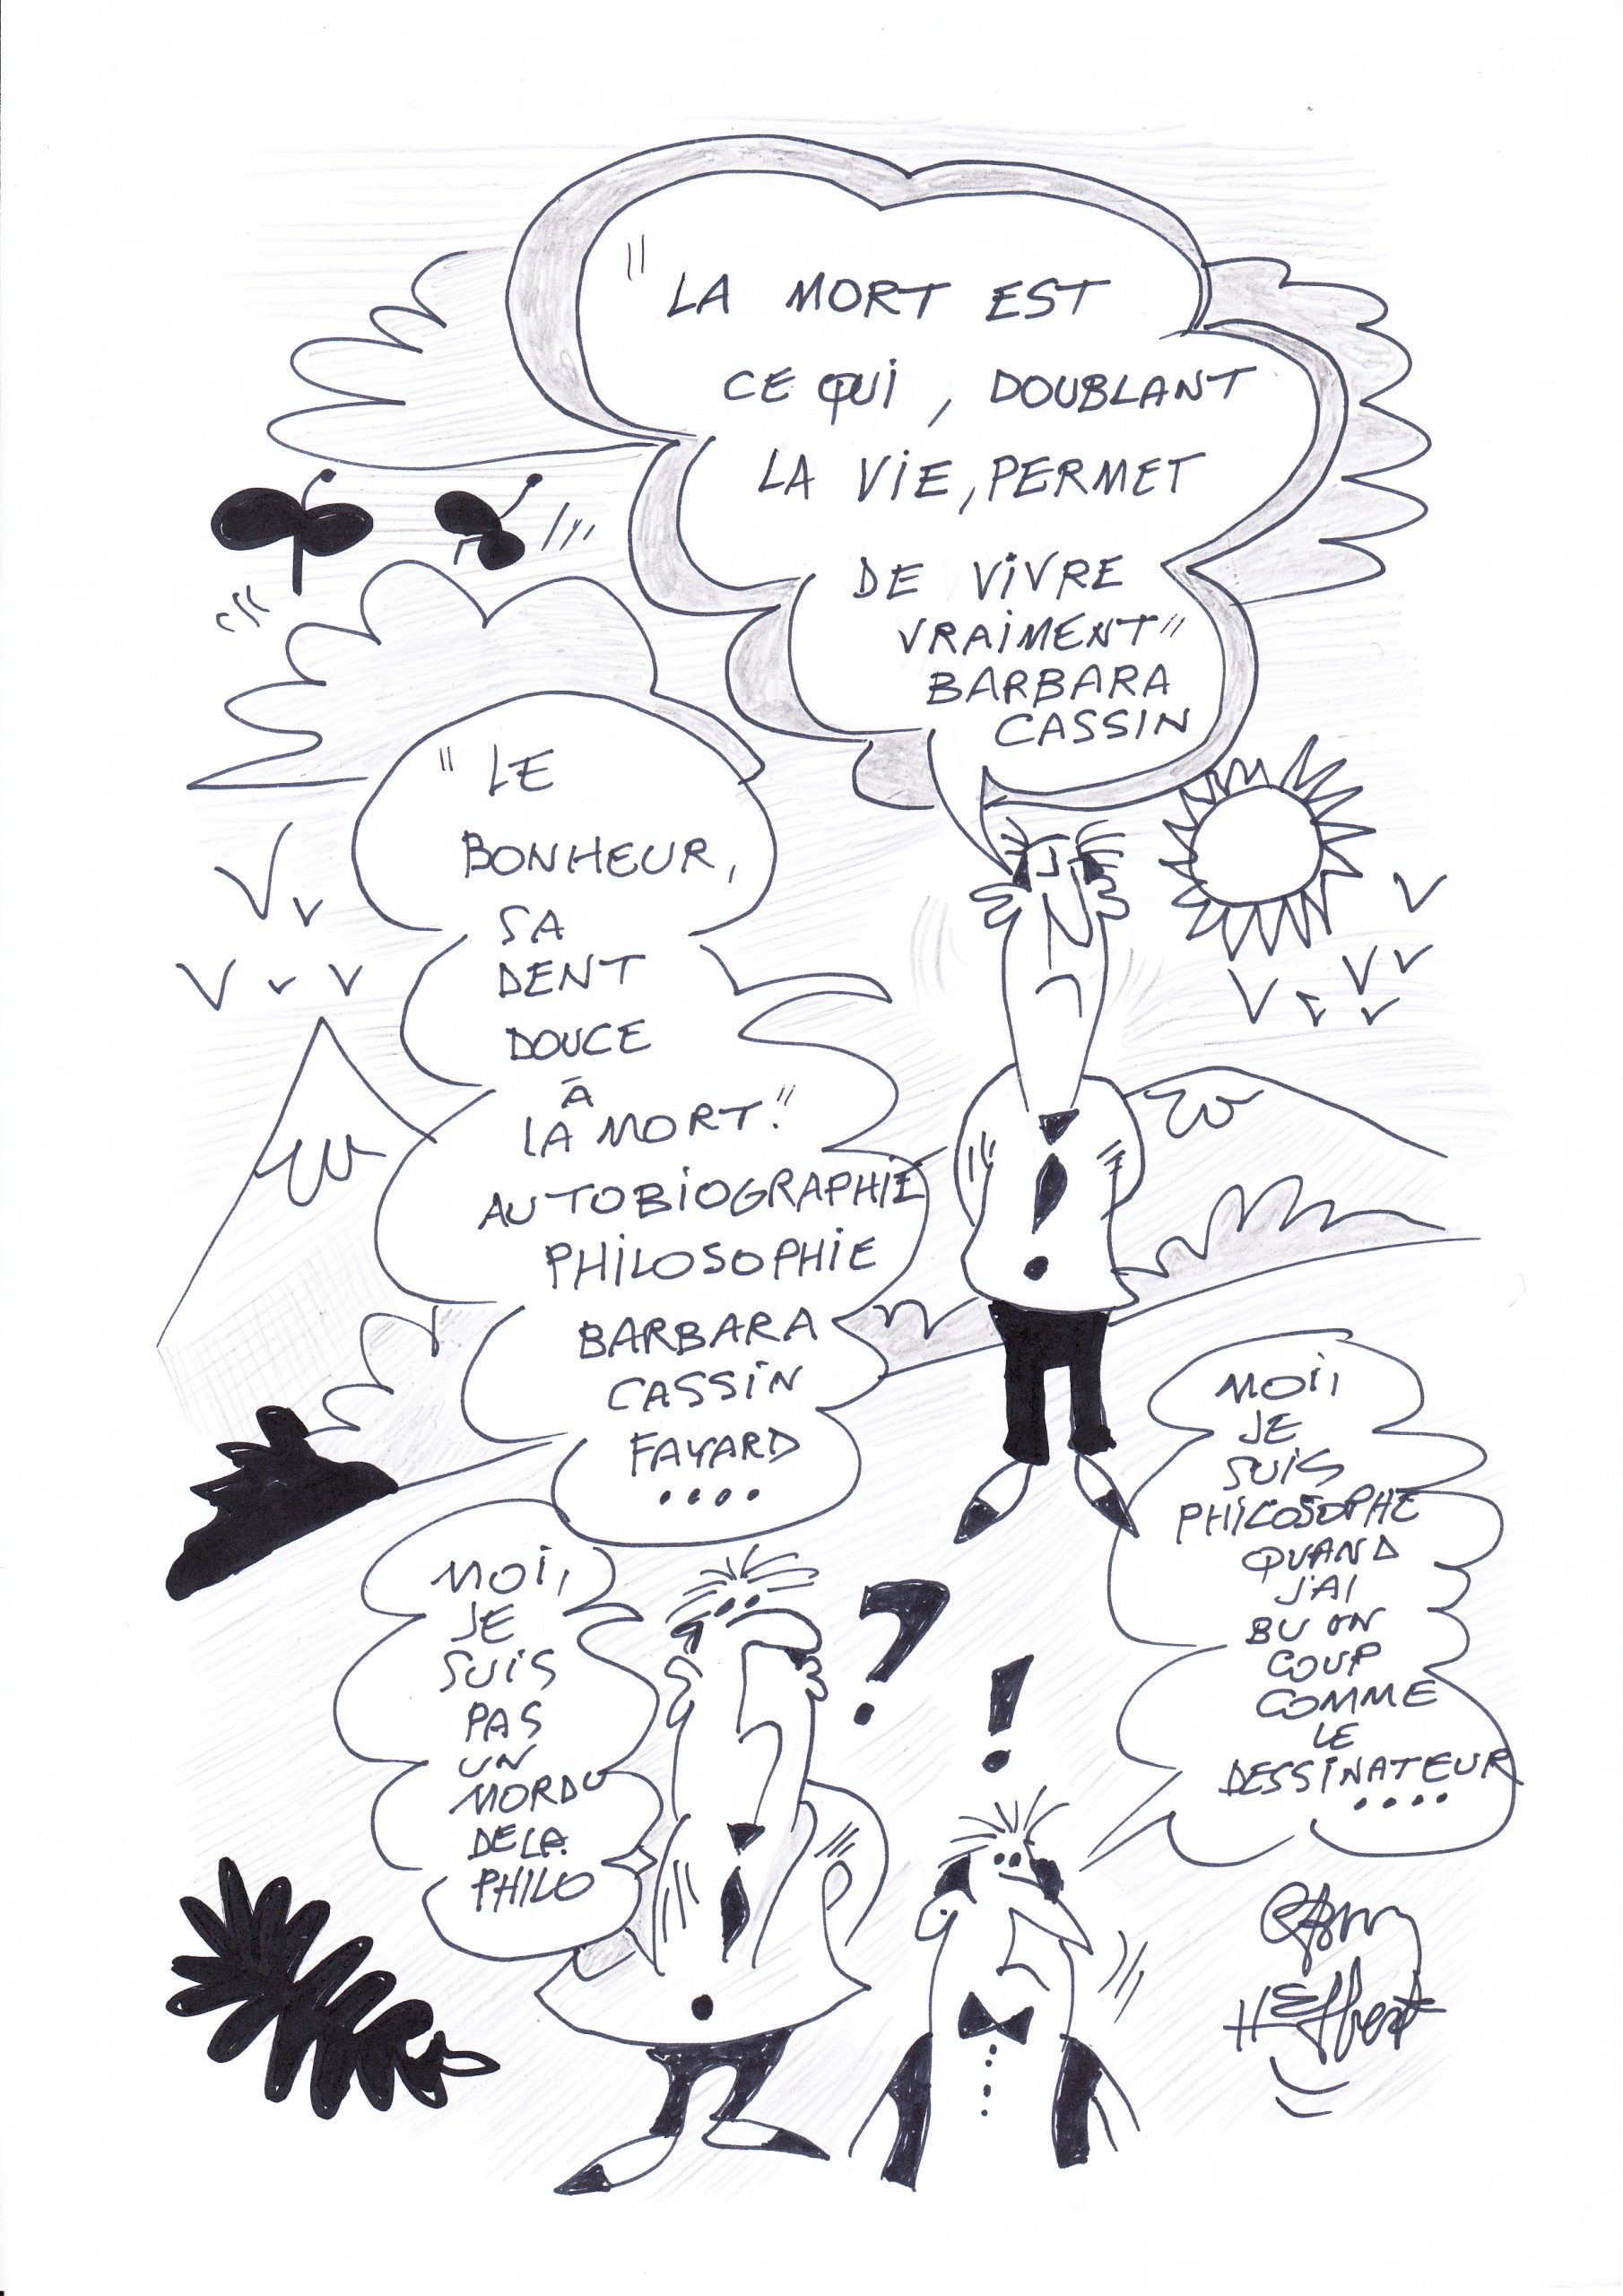 " LA MORT EST
CE QUI, DOUBLANT
LA ViE, PERMET
DE ViVRE
VRAiMENT"
BARBARA
CASSIN
" LE
BONHEUR,
SA
DENT
DOUCE
À
LA MORT."
AUTOBiOGRAPHiE
PHiLOSOPHiE
BARBARA
CASSiN
FAYARD
....
MOi,
JE
SUiS
PHiLOSOPHE
QUAND
J'AI
BU UN
COUP
COMME
LE
DESSiNATEUR
....
MOi,
JE
SUiS
PAS
UN
MORDU
DE LA
PHiLO
?
!